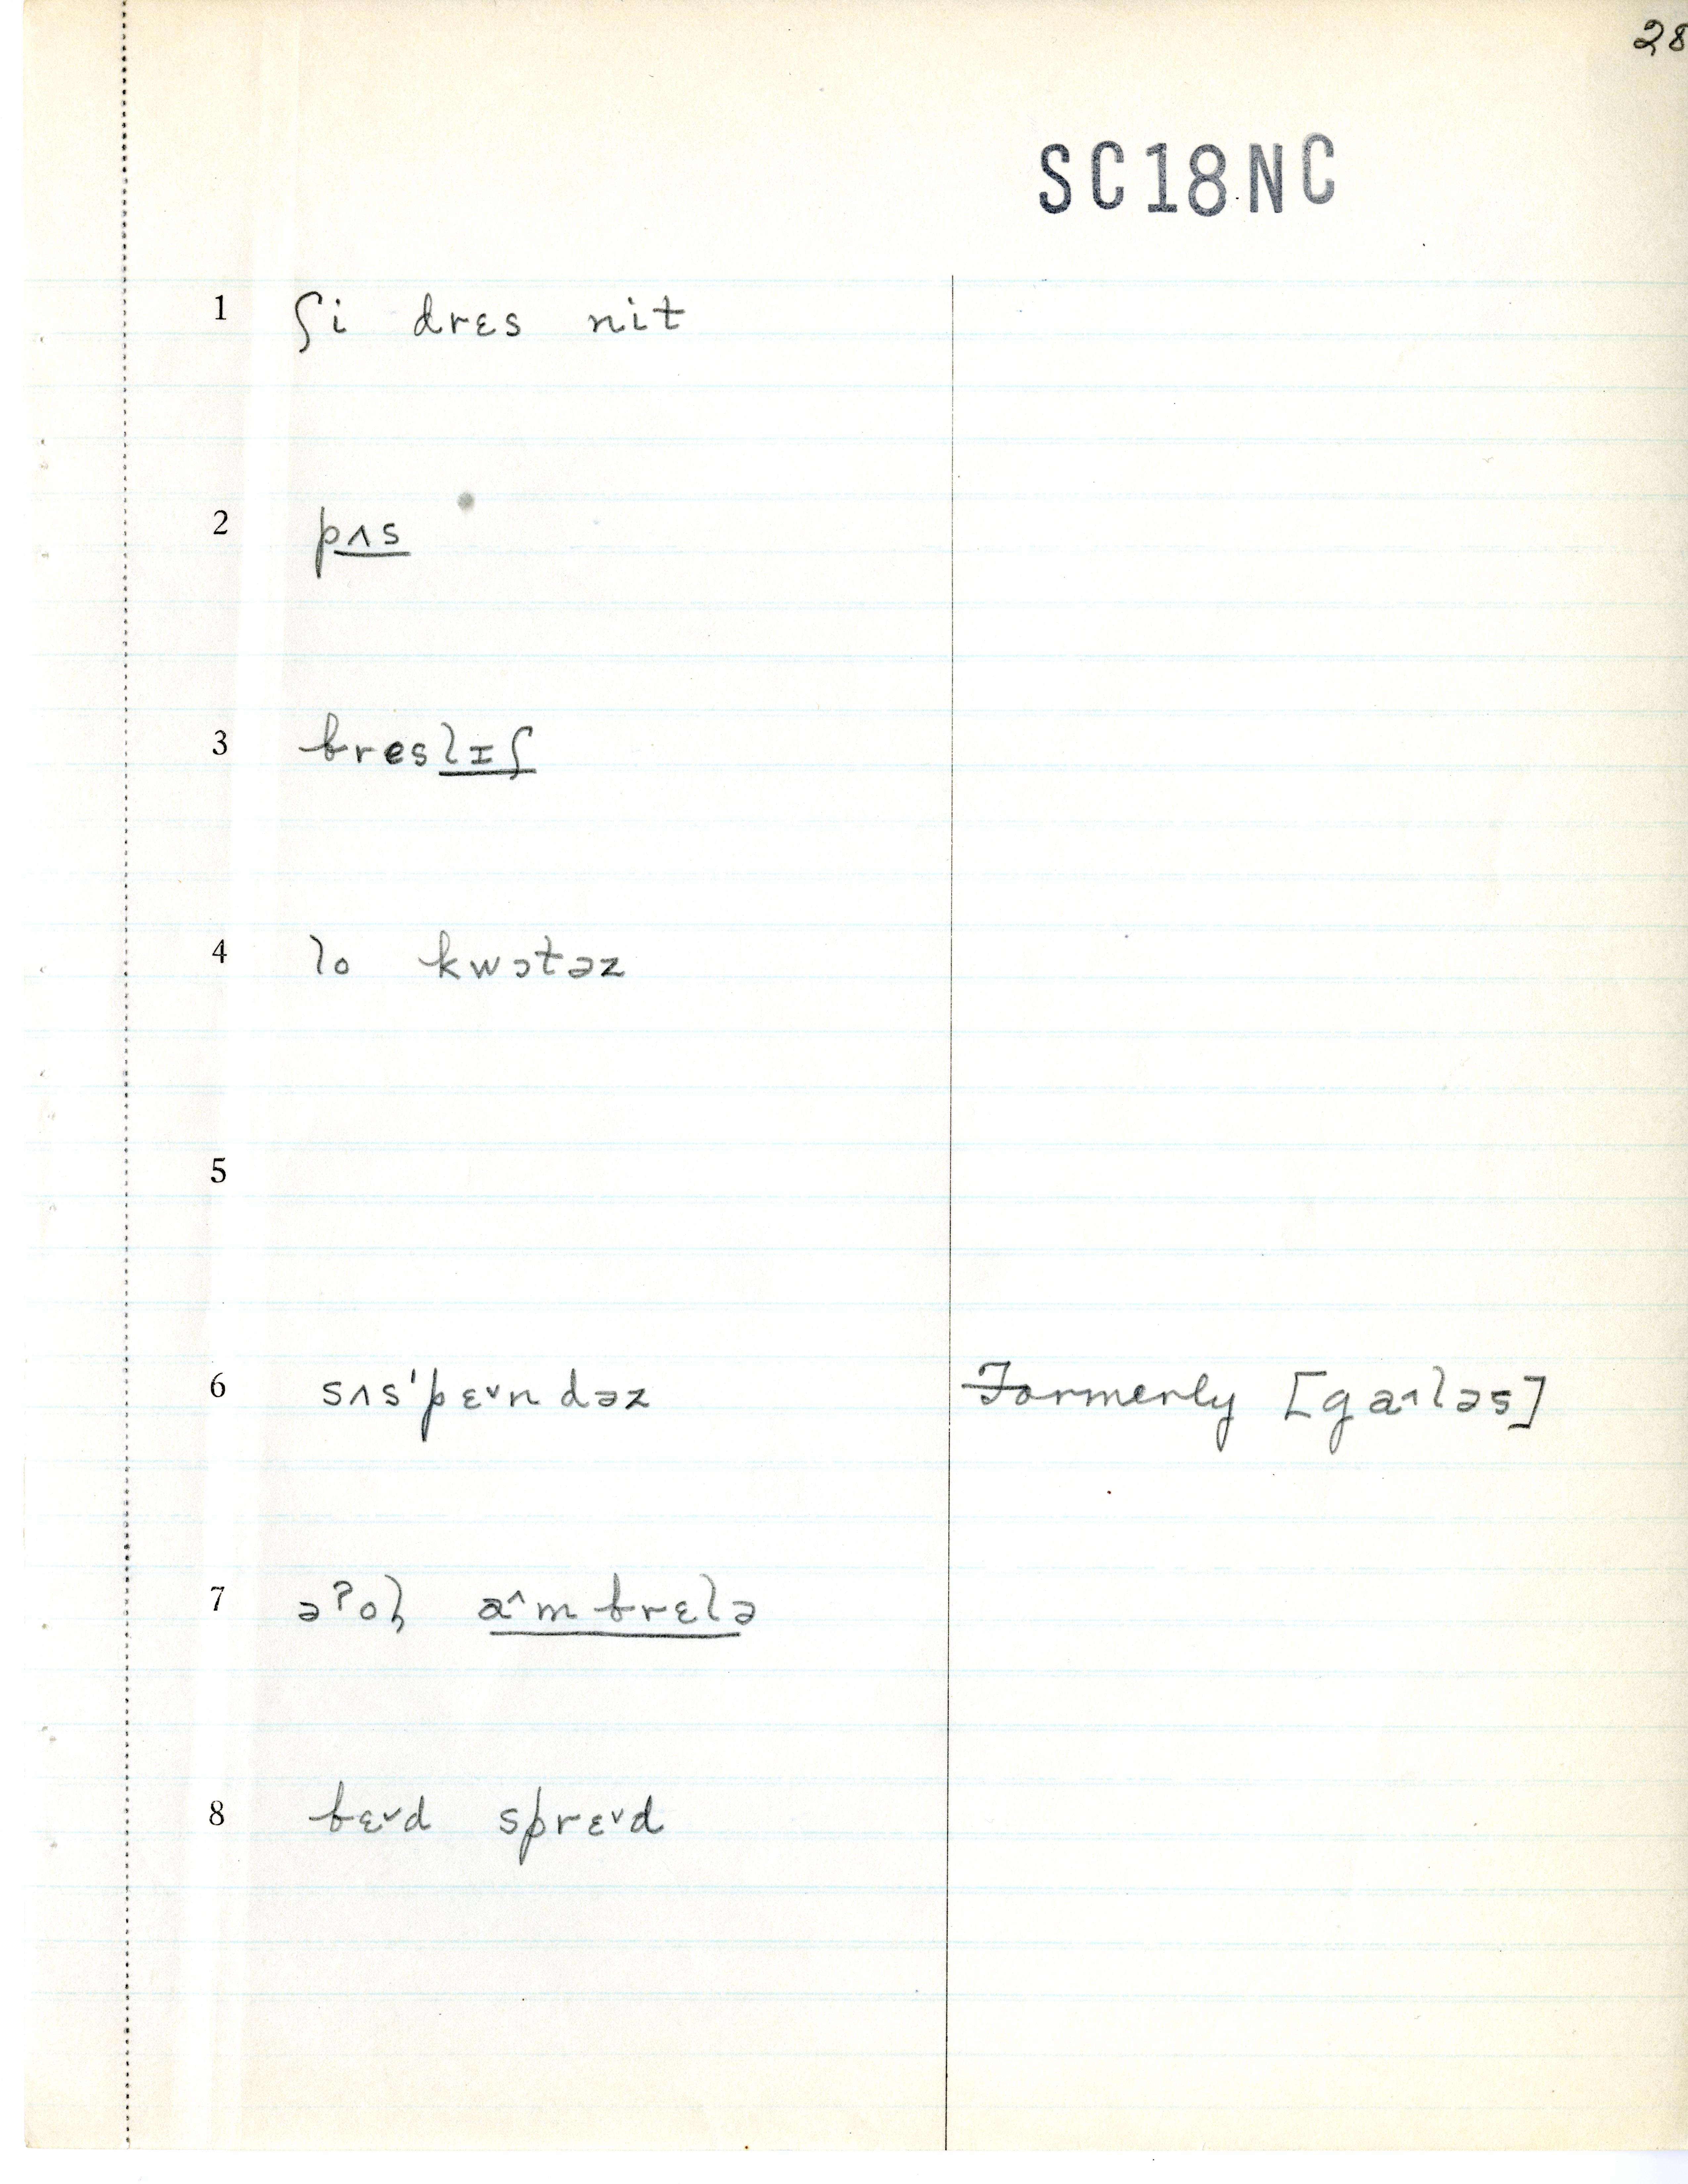 28
SC18NC
1 ʃi drɛs nit
2 pʌs
3 breslɪʃ
4 lo kwɔtəz
5
6 sʌs'pɛ˅ndəz Formerly [ga˄ləs]
7 əˀol̥ a˄mbrɛlə
8 bɛ˅d sprɛ˅d